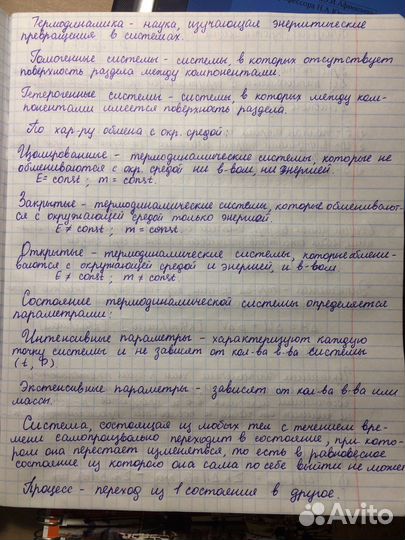 Термодинамика - наука, изучающая энергитические
превращения в системах.
Гомогенные системы - системы, в которых отсутствует
поверхность раздела между компонентами.
Гетерогенные системы - системы, в которых между ком-
понентами имеется поверхность раздела.
По хар-ру обмена с окр. средой:
Изолированные - термодинамические системы, которые не
обмениваются с окр. средой ни в-вом, ни энергией.
E = const ; m = const.
Закрытые - термодинамические системы, которые обменивают-
ся с окружающей средой только энергией.
E ≠ const ; m = const.
Открытые - термодинамические системы, которые обмени-
ваются с окружающей средой и энергией, и в-вом.
E ≠ const ; m ≠ const.
Состояние термодинамической системы определяется
параметрами:
Интенсивные параметры - характеризуют каждую
точку системы и не зависят от кол-ва в-ва системы
(t, P)
Экстенсивные параметры - зависят от кол-ва в-ва или
массы.
Система, состоящая из любых тел с течением вре-
мени самопроизвольно переходит в состояние, при кото-
ром она перестает изменяться, то есть в равновесное
состояние из которого она сама по себе выйти не може
Процесс - переход из 1 состояния в другое.
Avito